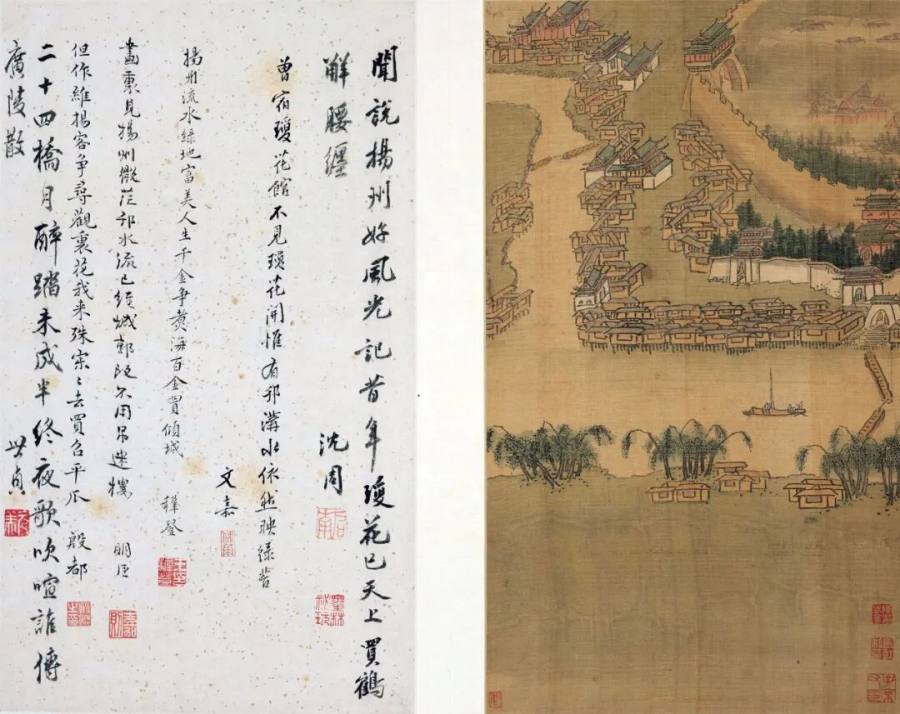 聞說揚州好風光記昔年瓊花已天上買鶴
觧腰纏 沈周
曾宿瓊花館不見瓊花開惟有邗溝水依然映綠苔
文嘉
揚州流水綠地富美人生千金爭黃海百金買傾城 穉登
畫裏見揚州微茫邗水流已經城郭改不用吊迷樓 明臣
但作維揚客爭尋觀裏花我來殊寂〻去買召平瓜 殷都
二十四橋月醉踏未成半終夜歌吹喧誰傳
廣陵散 世貞